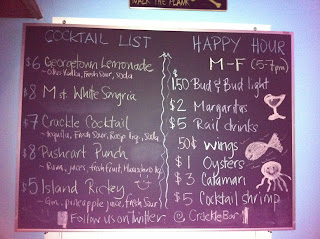 WALK THE PLANK
COCKTAIL LIST
$6 Georgetown Lemonade
- Citrus Vodka, Fresh Sour, Soda
$8 M st White Sangria
$7 Crackle Cocktail
- Tequila, Fresh Sour, Rasp liq., Soda
$8 Pushcart Punch
- Rum, juices, fresh fruit,
$5 Island Rickey
- Gin, pineapple juice, fresh sour
HAPPY HOUR
M-F (5-7pm)
$1.50 Bud & Bud light
$2 Margaritas
$5 Rail drinks
50¢ wings
$1 Oysters
$3 Calamari
$5 Cocktail shrimp
Follow us on Twitter @CrackleBar